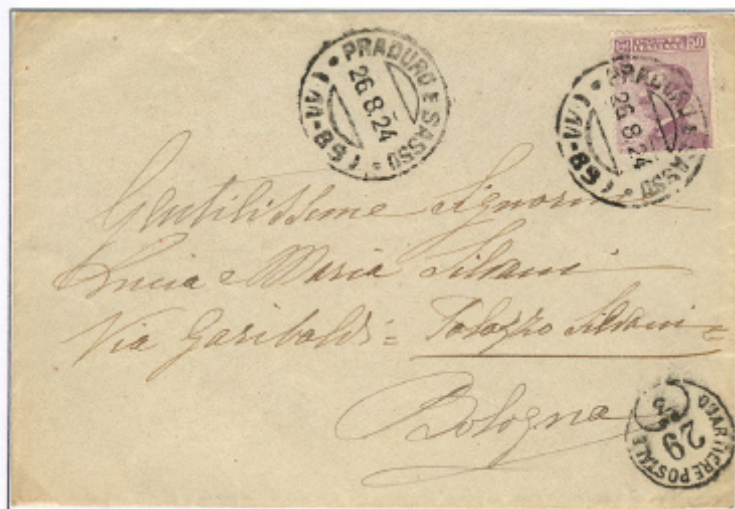 PRADURO E SASSO
26.8.24
(68-11)
PRADURO E SASSO
26.8.24
(68-
50
Gentilissime Signorine
Lucia e Maria Silvani
Via Garibaldi = Palazzo Silvani =
Bologna
QUARTIERE POSTALE
29